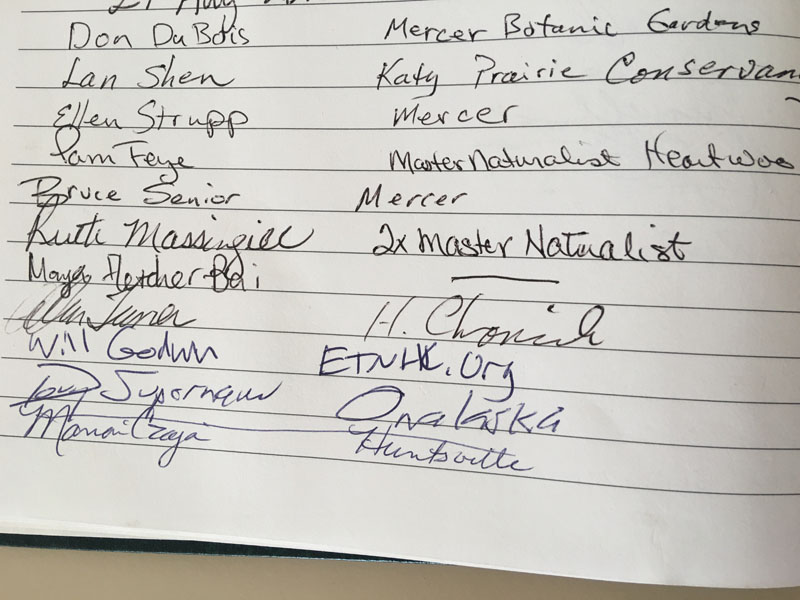 Don DuBois Mercer Botanic Gardens
Lan Shen Katy Prairie Conservan
Ellen Strupp Mercer
Pam Feye Master Naturalist Heartwoo
Bruce Senior Mercer
Ruth Massingill 2x Master Natualist
Maya Fletcher-Bai
Turner H. Chronicle
Will Godwin ETNHC.Org
Supernaw Onalaska
Czaja Huntsville